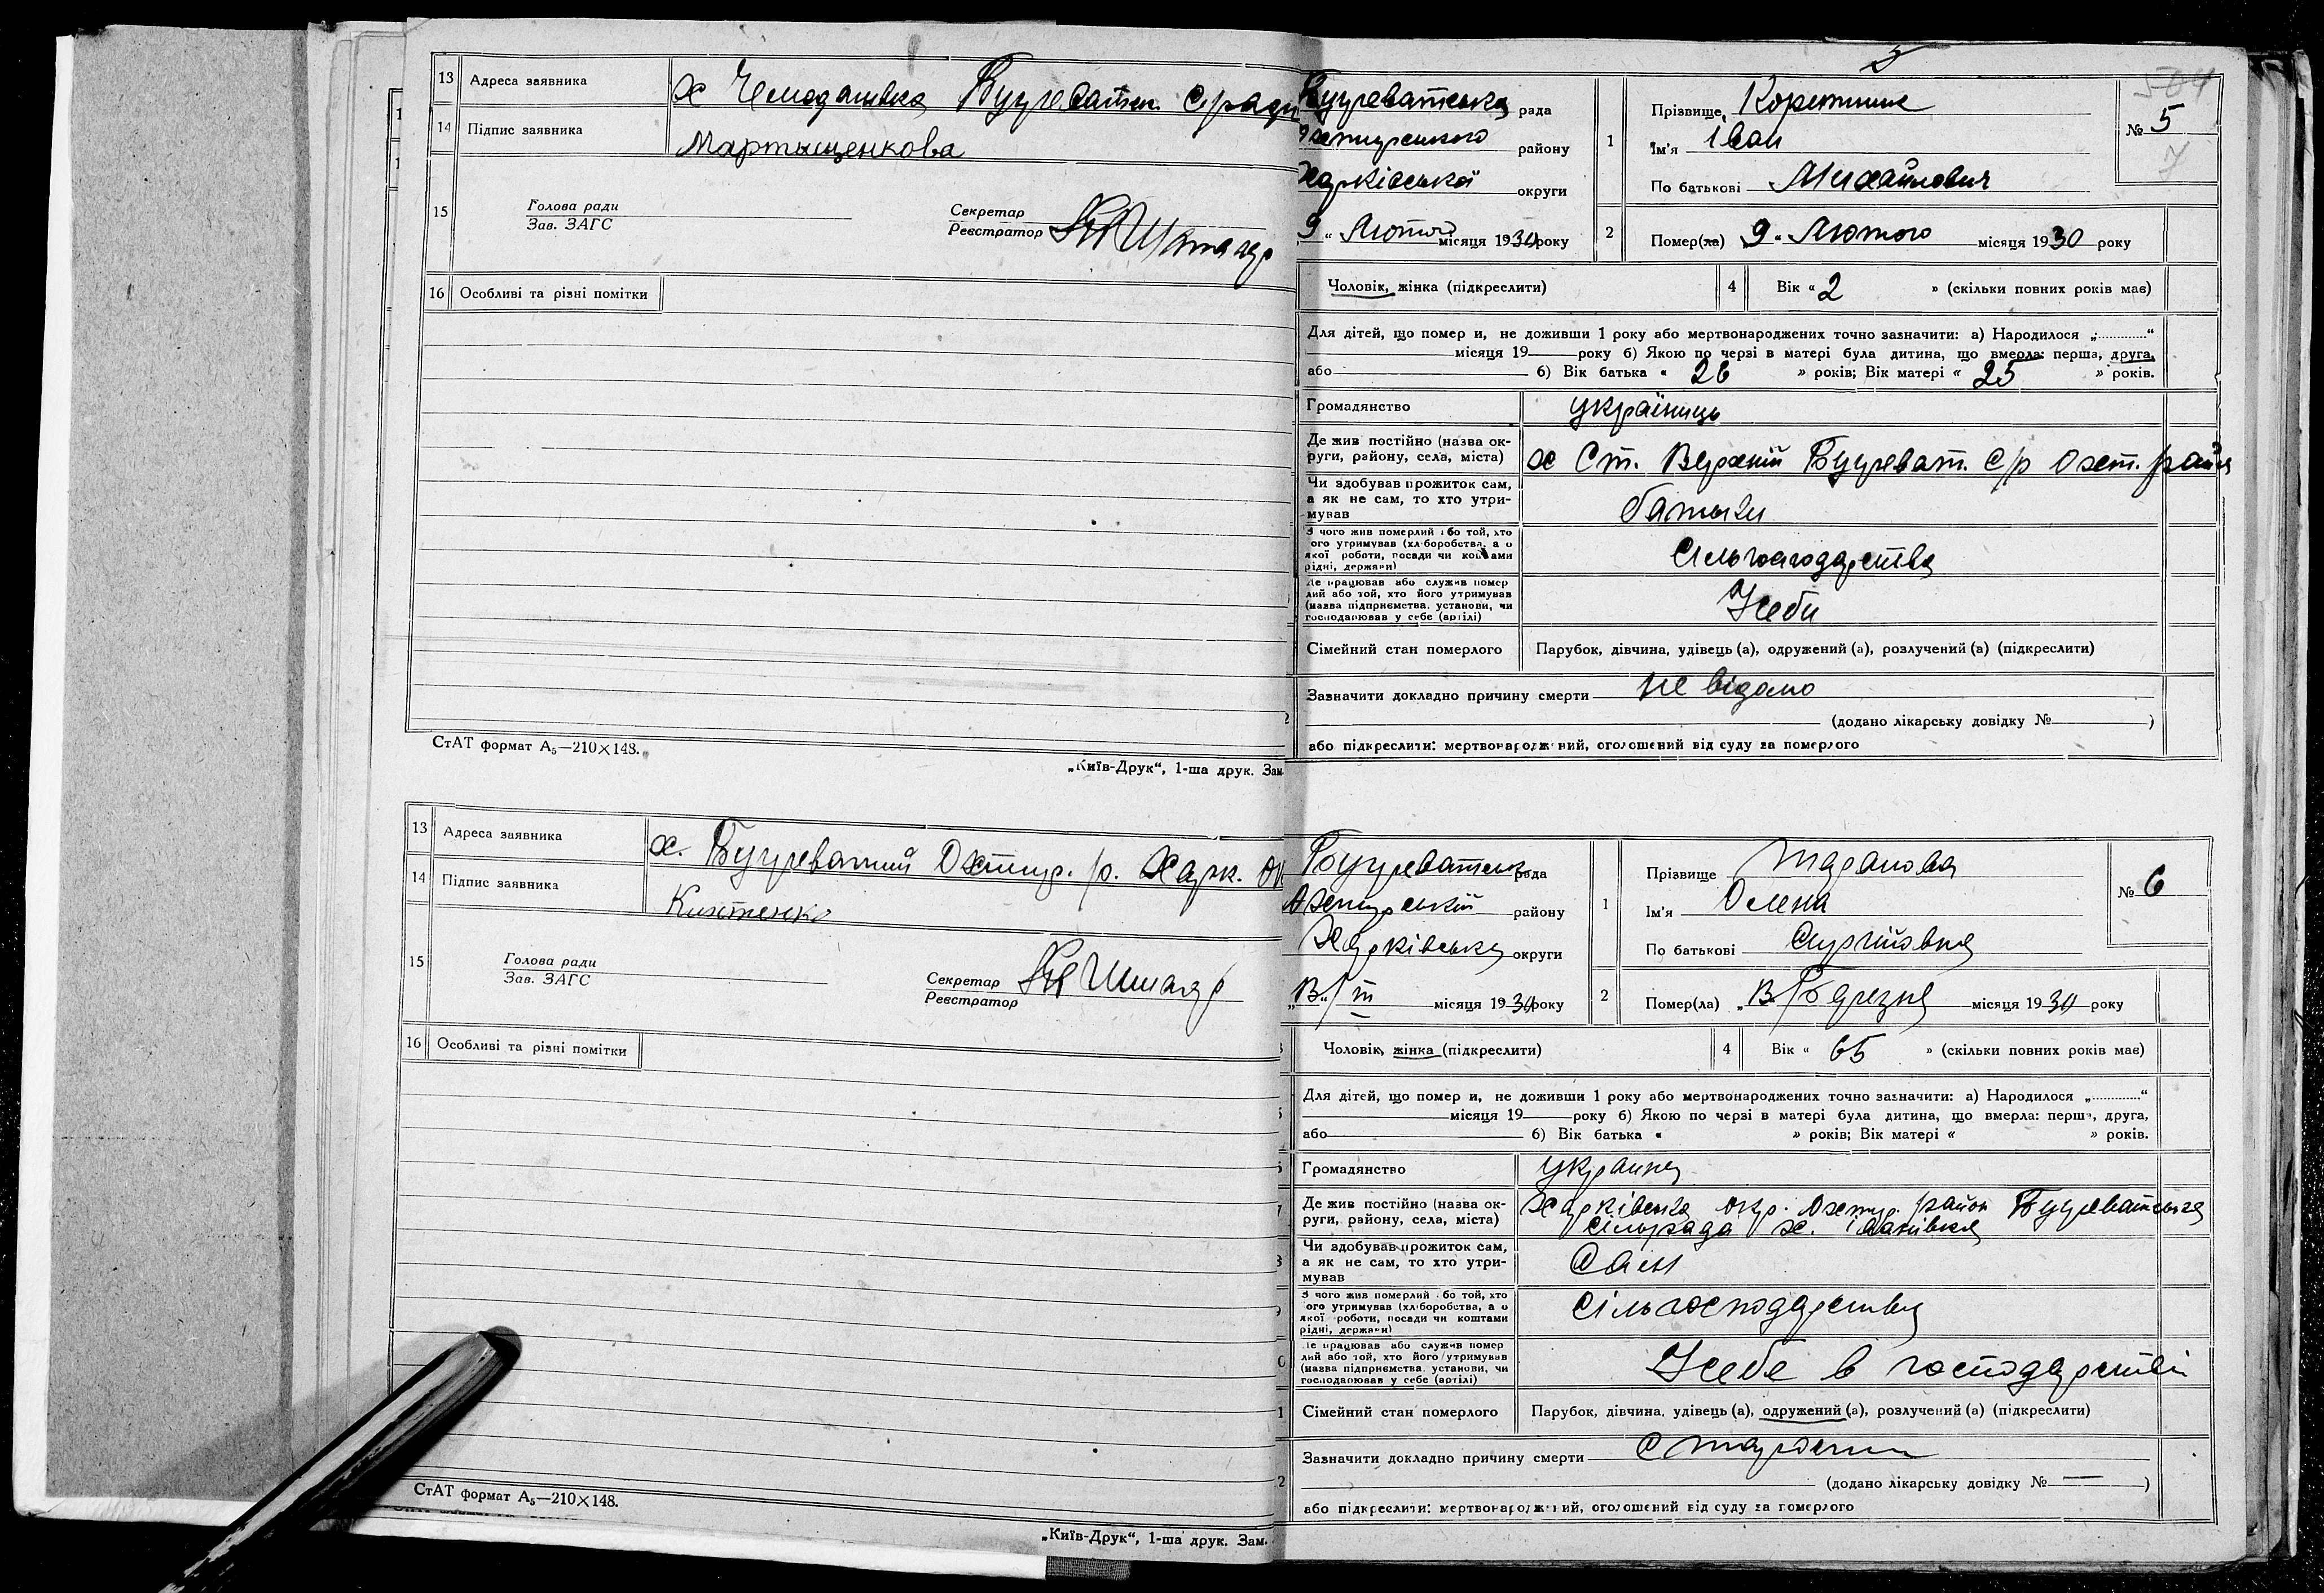 13 Адреса заявника х Чемоданівка Бугреватск. С/ради
14 Підпис заявника Мартыщенкова
15 Голова ради
Зав. ЗАГС
Секретар
Реєстратор
16 Особливі та різні помітки
СтАТ формат А₅—210×148.
„Київ-Друк“, 1-ша друк. Зам.
13 Адреса заявника х. Бугреватий Охтир. р. Харк. ок
14 Підпис заявника
15 Голова ради
Зав. ЗАГС
Секретар
Реєстратор
16 Особливі та різні помітки
СтАТ формат А₅—210×148.
„Київ-Друк“, 1-ша друк. Зам.
5
Бугреватська рада
Охтирського району
Харківської округи
9 „ Лютого місяця 1930 року
1 Прізвище
Ім'я Іван
По батькові Михайлович
№ 5
7
2 Помер(ла) 9 „ Лютого місяця 1930 року
Чоловік, жінка (підкреслити)
4 Вік « 2 » (скільки повних років має)
Для дітей, що помер и, не доживши 1 року або мертвонароджених точно зазначити: а) Народилося „ “
місяця 19 року б) Якою по черзі в матері була дитина, що вмерла: перша, друга,
або б) Вік батька « 26 » років; Вік матері « 25 » років.
Громадянство українець
Де жив постійно (назва ок-
руги, району, села, міста) х Ст. Верхній Бугреват. с/р Охт. район
Чи здобував прожиток сам,
а як не сам, то хто утри-
мував батьки
З чого жив померлий або той, хто
його утримував (хліборобства, а о
якої роботи, посади чи коштами
рідні, держави) Сільгосподарства
Де працював або служив помер
лий або той, хто його утримував
(назва підприємства, установи, чи
господарював у себе (артілі) У себе
Сімейний стан померлого Парубок, дівчина, удівець (а), одружений (а), розлучений (а) (підкреслити)
Зазначити докладно причину смерти не відомо
(додано лікарську довідку № )
або підкреслити: мертвонароджений, оголошений від суду за померлого
Бугреватськ рада
Охтирський району
Харківська округи
„ 13 „ / III місяця 1930 року
1 Прізвище Таранова
Ім'я Олена
По батькові Сергіївна
№ 6
2 Помер(ла) „ 13 / Березня місяця 1930 року
Чоловік, жінка (підкреслити)
4 Вік « 65 » (скільки повних років має)
Для дітей, що помер и, не доживши 1 року або мертвонароджених точно зазначити: а) Народилося „ “
місяця 19 року б) Якою по черзі в матері була дитина, що вмерла: перша, друга,
або б) Вік батька « » років; Вік матері « » років.
Громадянство украинка
Де жив постійно (назва ок-
руги, району, села, міста) Харківська окр. Охтир. район Бугреватська
сільрада х. Іванівка
Чи здобував прожиток сам,
а як не сам, то хто утри-
мував Сам
З чого жив померлий або той, хто
його утримував (хліборобства, а о
якої роботи, посади чи коштами
рідні, держави) Сільгосподарства
Де працював або служив помер
лий або той, хто його утримував
(назва підприємства, установи, чи
господарював у себе (артілі) У себе в господарстві
Сімейний стан померлого Парубок, дівчина, удівець (а), одружений (а), розлучений (а) (підкреслити)
Зазначити докладно причину смерти
(додано лікарську довідку № — )
або підкреслити: мертвонароджений, оголошений від суду за померлого